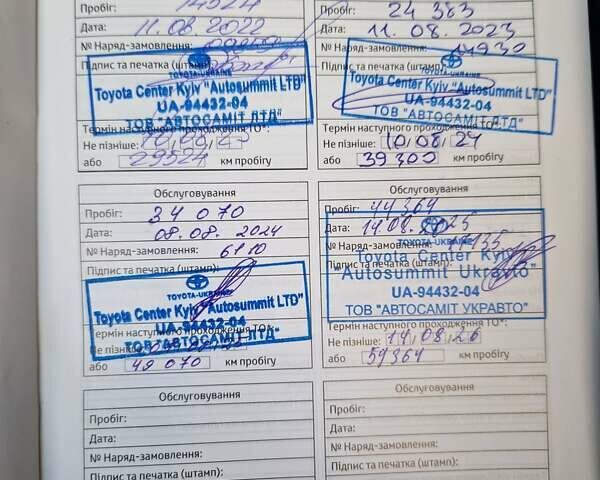 Пробіг: 14524
Дата: 11.08.2022
№ Наряд-замовлення:
Підпис та печатка (штамп):
TOYOTA-UKRAINE
Toyota Center Kyiv "Autosummit LTD"
UA-94432-04
ТОВ "АВТОСАМІТ ЛТД"
Термін наступного проходження ТО*:
Не пізніше:
або 29524 км пробігу
Пробіг: 24 383
Дата: 11.08.2023
№ Наряд-замовлення: 14930
Підпис та печатка (штамп):
TOYOTA-UKRAINE
Toyota Center Kyiv "Autosummit LTD"
UA-94432-04
ТОВ "АВТОСАМІТ ЛТД"
Термін наступного проходження ТО*:
Не пізніше: 10/08/24
або 39300 км пробігу
Обслуговування
Пробіг: 34 070
Дата: 08.08.2024
№ Наряд-замовлення: 6110
Підпис та печатка (штамп):
TOYOTA-UKRAINE
Toyota Center Kyiv "Autosummit LTD"
UA-94432-04
ТОВ "АВТОСАМІТ ЛТД"
Термін наступного проходження ТО*:
Не пізніше:
або 49 070 км пробігу
Обслуговування
Пробіг: 44364
Дата: 14.08.2025
№ Наряд-замовлення:
Підпис та печатка (штамп):
TOYOTA-UKRAINE
Toyota Center Kyiv
"Autosummit Ukravto"
UA-94432-04
ТОВ "АВТОСАМІТ УКРАВТО"
Термін наступного проходження ТО*:
Не пізніше: 14/08/26
або 59364 км пробігу
Обслуговування
Пробіг:
Дата:
№ Наряд-замовлення:
Підпис та печатка (штамп):
Обслуговування
Пробіг:
Дата:
№ Наряд-замовлення:
Підпис та печатка (штамп):